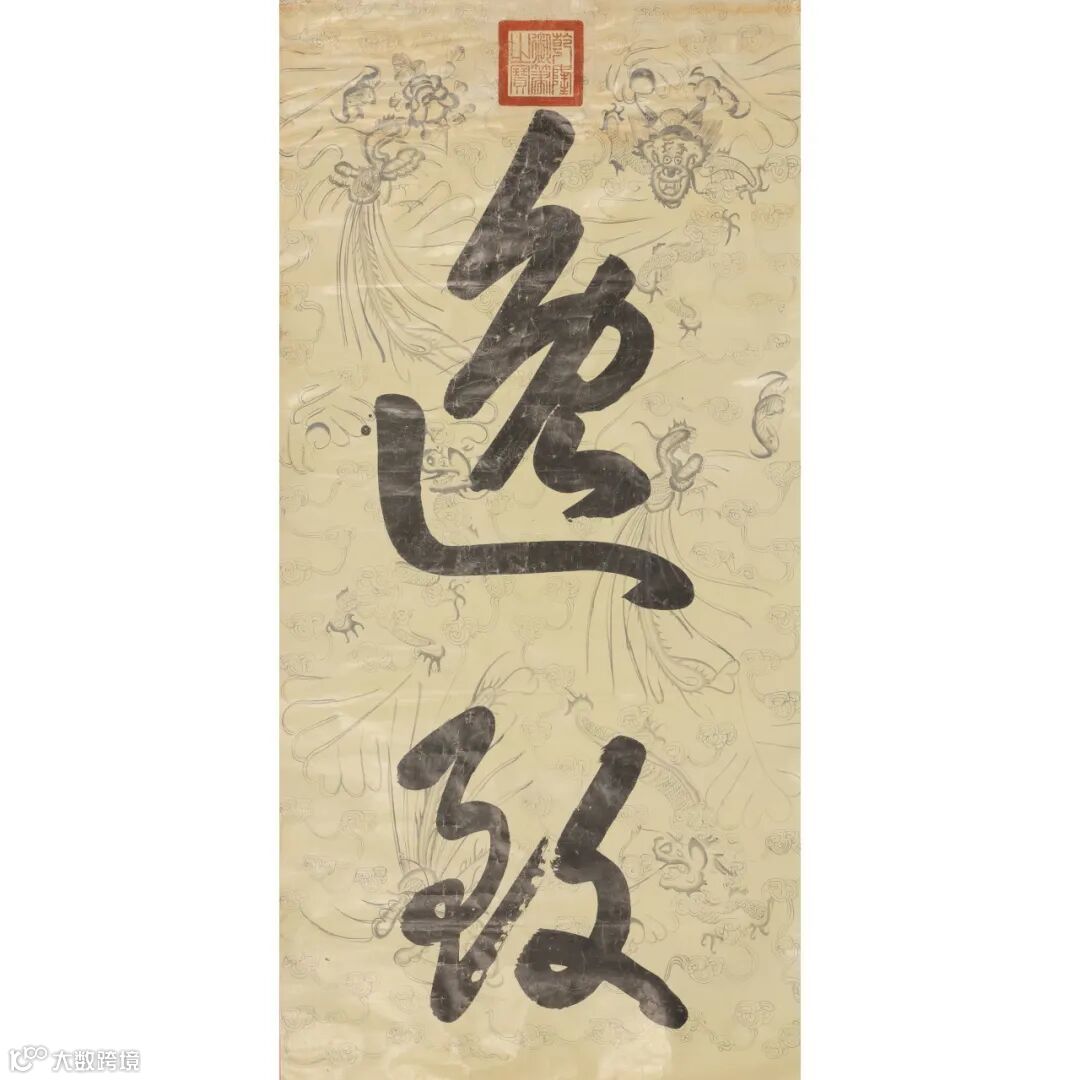 乾隆
御筆
之寶
逸
致
大数跨境